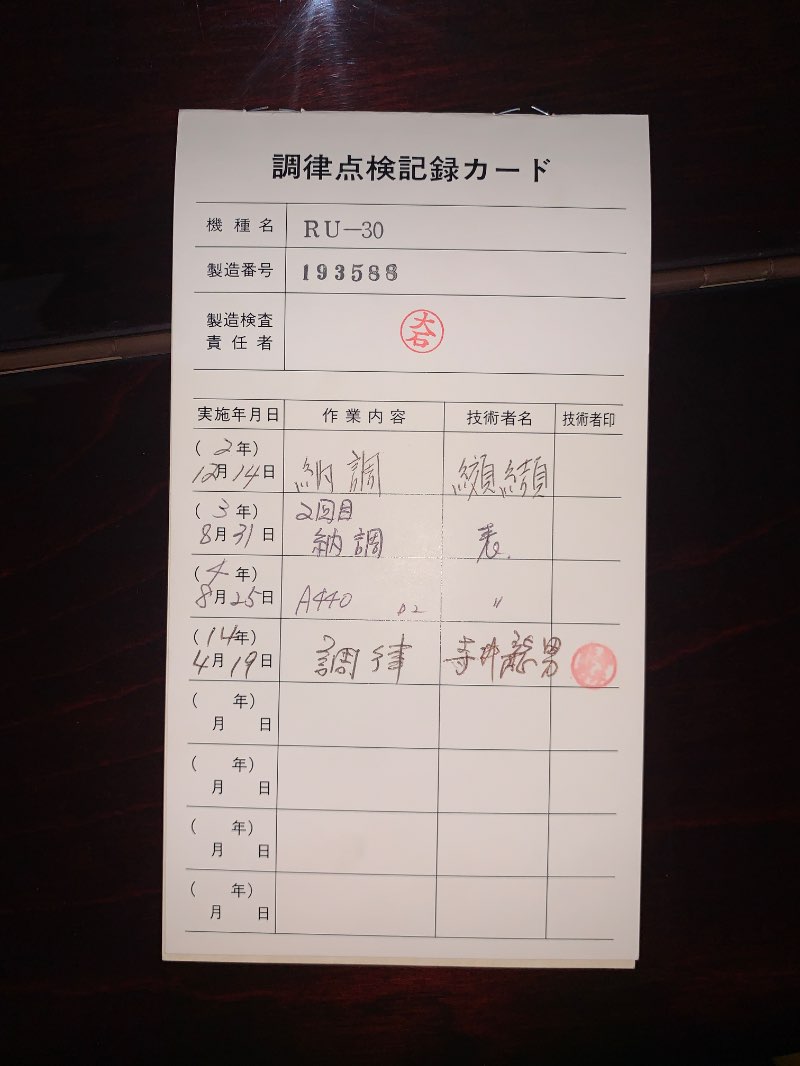 調律点検記録カード
機種名 RU-30
製造番号 193588
製造検査
責任者
大石
実施年月日 作業内容 技術者名 技術者印
(2年)
12月14日 納調
(3年) 2回目
8月31日 納調
(4年)
8月25日 A440 〃
(14年)
4月19日 調律 寺井
(年)
月 日
(年)
月 日
(年)
月 日
(年)
月 日